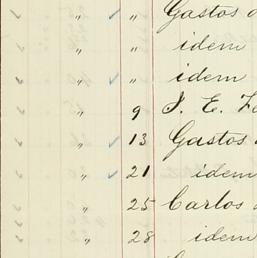 ✓ " ✓ " Gastos
✓ " " idem
✓ " ✓ " idem
✓ " 9 J. E.
✓ " ✓ 13 Gastos
✓ " ✓ 21 idem
✓ " 25 Carlos
✓ " 28 idem